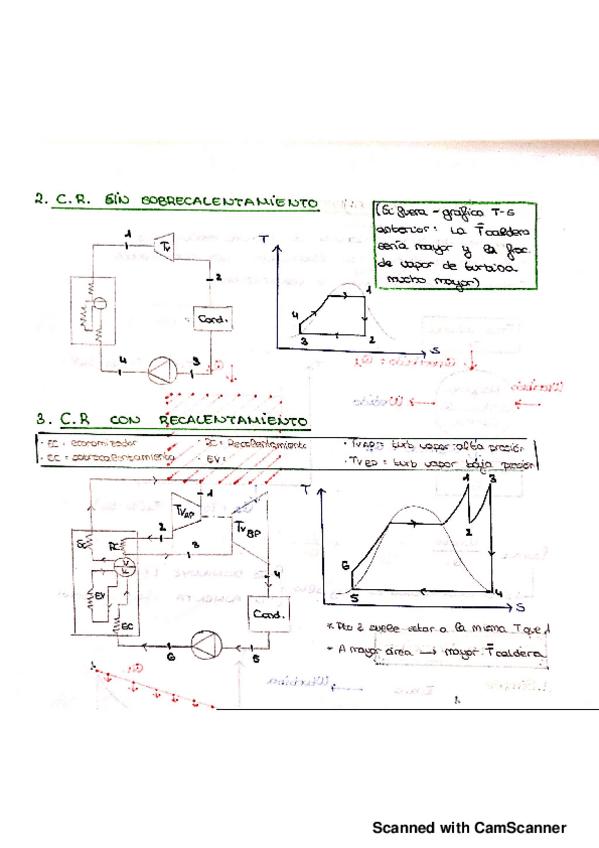 2. C.R. SIN SOBRECALENTAMIENTO
(Si fuera - gráfico T-S
anterior: La T̄caldera
sería mayor y la frac.
de vapor de turbina
mucho mayor)
1
Tv
2
Cond.
3
4
T
1
4
3
2
S
3. C.R CON RECALENTAMIENTO
· EC = economizador
· RC = Recalentamiento
· TvAP = turb vapor alta presión
· SC = sobrecalentamiento
· EV =
· TvBP = turb vapor baja presión
1
TvAP
2
TvBP
SC
RC
3
EV
EC
4
Cond.
6
5
T
1
3
2
6
5
4
S
* Pto 2 suele estar a la misma T que 1
- A mayor área → mayor T̄caldera
Scanned with CamScanner